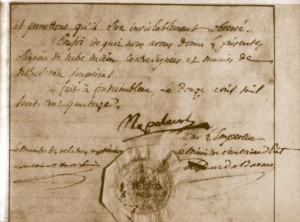 et promettons qu'il soit inviolablement observé.
En foi de quoi nous avons donné les présentes
signées de notre main, contresignées et munies de
notre sceau impérial
fait à fontainebleau le douze avril mil
huit cent quatorze.
Napoleon
par l'Empereur
le Ministre Secrétaire d'Etat
Le Duc de Bassano